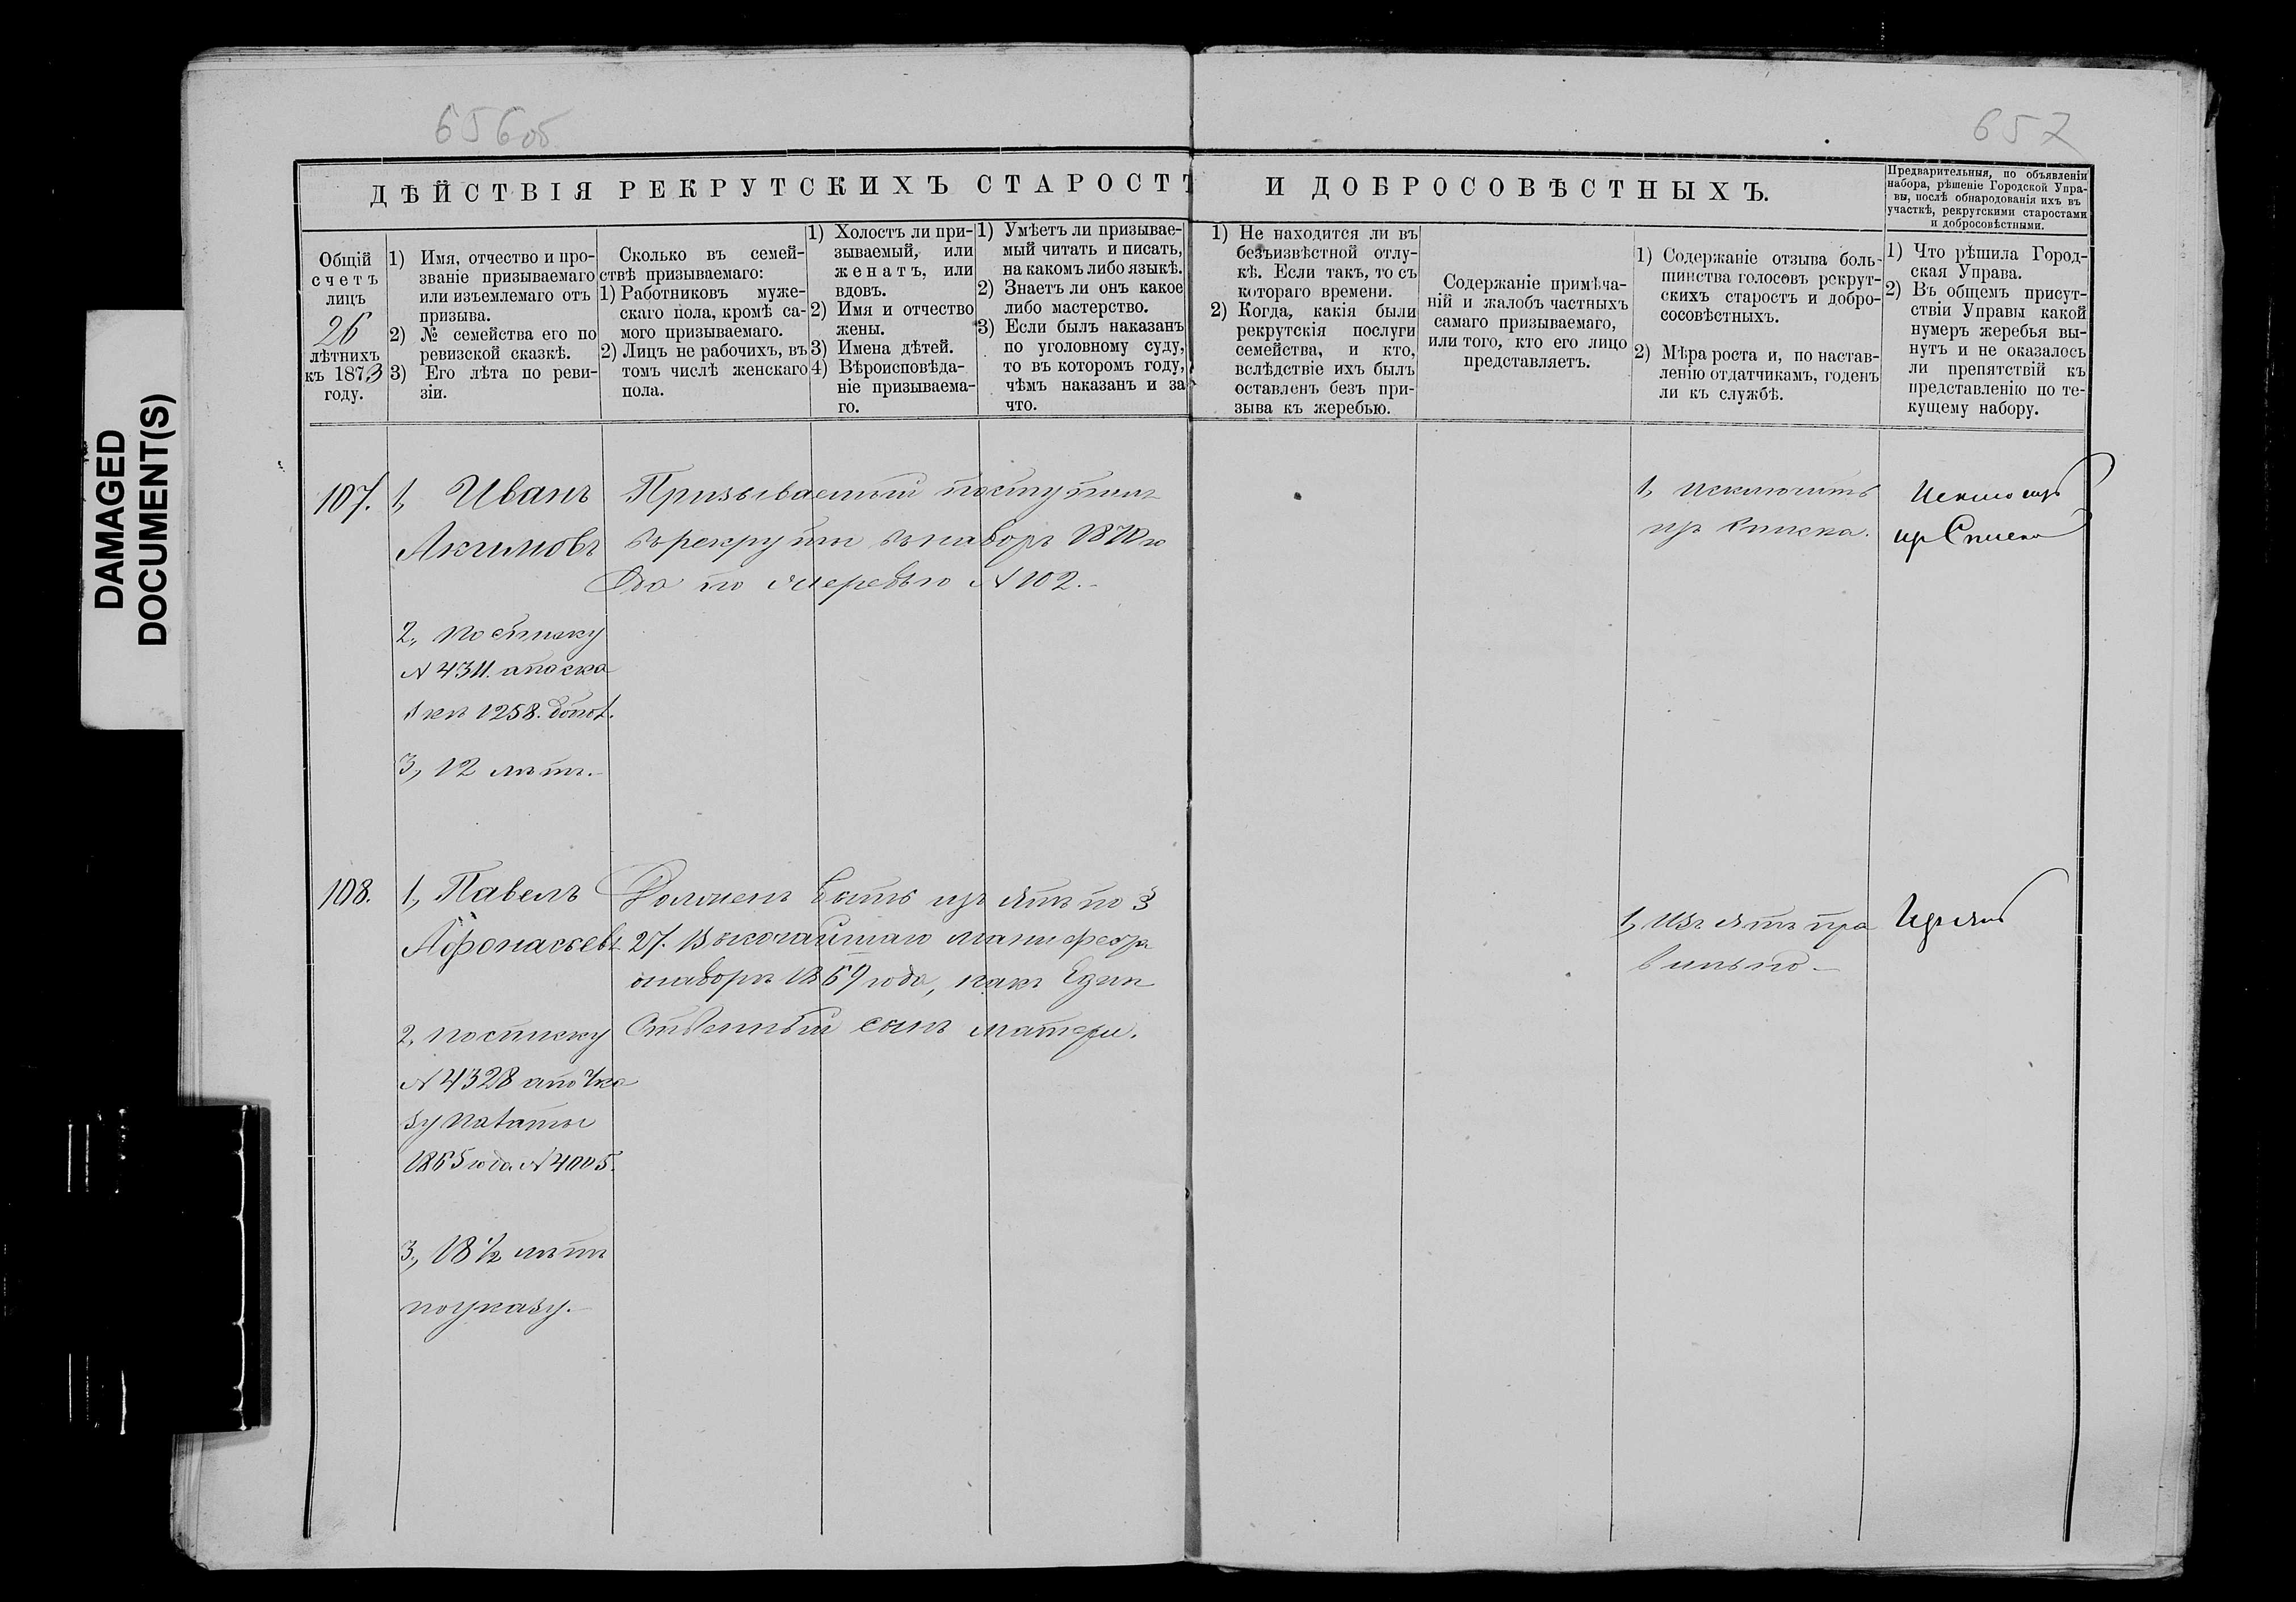 656об
657
ДѢЙСТВІЯ РЕКРУТСКИХЪ СТАРОСТЪ И ДОБРОСОВѢСТНЫХЪ.
Предварительныя, по объявленіи
набора, рѣшеніе Городской Упра-
вы, послѣ обнародованія ихъ въ
участкѣ, рекрутскими старостами
и добросовѣстными.
Общій
счетъ
лицъ
26
лѣтнихъ
къ 1873
году.
1) Имя, отчество и про-
званіе призываемаго
или изъемлемаго отъ
призыва.
2) № семейства его по
ревизской сказкѣ.
3) Его лѣта по реви-
зіи.
Сколько въ семей-
ствѣ призываемаго:
1) Работниковъ муже-
скаго пола, кромѣ са-
мого призываемаго.
2) Лицъ не рабочихъ, въ
томъ числѣ женскаго
пола.
1) Холостъ ли при-
зываемый, или
женатъ, или
вдовъ.
2) Имя и отчество
жены.
3) Имена дѣтей.
4) Вѣроисповѣда-
ніе призываема-
го.
1) Умѣетъ ли призывае-
мый читать и писать,
на какомъ либо языкѣ.
2) Знаетъ ли онъ какое
либо мастерство.
3) Если былъ наказанъ
по уголовному суду,
то въ которомъ году,
чѣмъ наказанъ и за
что.
1) Не находится ли въ
безъизвѣстной отлу-
кѣ. Если такъ, то съ
котораго времени.
2) Когда, какія были
рекрутскія послуги
семейства, и кто,
вслѣдствіе ихъ былъ
оставленъ безъ при-
зыва къ жеребью.
Содержаніе примѣча-
ній и жалобъ частныхъ
самаго призываемаго,
или того, кто его лицо
представляетъ.
1) Содержаніе отзыва боль-
шинства голосовъ рекрут-
скихъ старостъ и добро-
сосовѣстныхъ.
2) Мѣра роста и, по настав-
ленію отдатчикамъ, годенъ
ли къ службѣ.
1) Что рѣшила Город-
ская Управа.
2) Въ общемъ присут-
ствіи Управы какой
нумеръ жеребья вы-
нутъ и не оказалось
ли препятствій къ
представленію по те-
кущему набору.
107.
1, Иванъ
Акимовъ
2, по списку
№ 4311. апоска
зкѣ 1258. допол.
3, 12 лѣтъ.
Призываемый поступилъ
въ рекруты въ наборъ 1870 го
да по очередью № 102.
1, Исключить
изъ списка.
Исключить
изъ Списка
108.
1, Павелъ
Афонасьевъ
2, по списку
№ 4328 апо Ука
зу палаты
1865 года № 4005.
3, 18 ½ лѣтъ
по указу.
Долженъ быть изъятъ по §
27. Высочайшаго манифеста
онаборѣ 1869 года, какъ Един
ственный сынъ матери.
1, Изъятъ пра
вильно
Изъять
DAMAGED
DOCUMENT(S)